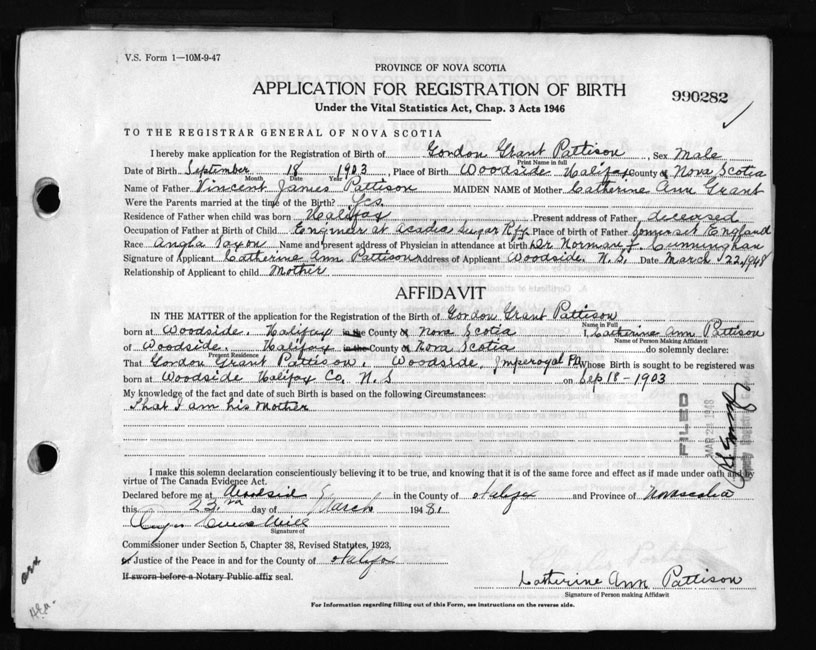 V.S. Form 1—10M-9-47
PROVINCE OF NOVA SCOTIA
APPLICATION FOR REGISTRATION OF BIRTH
990282
Under the Vital Statistics Act, Chap. 3 Acts 1946
TO THE REGISTRAR GENERAL OF NOVA SCOTIA
I hereby make application for the Registration of Birth of Gordon Grant Pattison, Sex Male
Print Name in full
Date of Birth September 18 1903, Place of Birth Woodside Halifax County of Nova Scotia
Month Day Year
Name of Father Vincent James Pattison MAIDEN NAME of Mother Catherine Ann Grant
Were the Parents married at time of Birth? Yes.
Residence of Father when child was born Halifax Present address of Father, deceased
Occupation of Father at Birth of Child Engineer at Acadia Sugar Rfy. Place of birth of Father Somerset England
Race Angla Saxon Name and present address of Physician in attendance at birth Dr Norman F. Cunningham
Signature of Applicant Catherine Ann Pattison Address of Applicant Woodside. N.S. Date March 22, 1948
Relationship of Applicant to child Mother
AFFIDAVIT
IN THE MATTER of the application for the Registration of the Birth of Gordon Grant Pattison
Name in Full
born at Woodside. Halifax in the County of Nova Scotia I, Catherine Ann Pattison
Name of Person Making Affidavit
of Woodside. Halifax in the County of Nova Scotia do solemnly declare:
Present Residence
That Gordon Grant Pattison. Woodside, Imperoyal PO Whose Birth is sought to be registered was
born at Woodside Halifax Co. N.S on Sep 18-1903
My knowledge of the fact and date of such Birth is based on the following Circumstances:
That I am his Mother
FILED
MAR 1948
I make this solemn declaration conscientiously believing it to be true, and knowing that it is of the same force and effect as if made under oath and by
virtue of The Canada Evidence Act.
Declared before me at Woodside in the County of Halifax and Province of Novascotia
this 23rd day of March 1948.
Signature of
Commissioner under Section 5, Chapter 38, Revised Statutes, 1923,
Justice of the Peace in and for the County of Halifax
If sworn before a Notary Public affix seal.
Catherine Ann Pattison
Signature of Person making Affidavit
For Information regarding filling out of this Form, see instructions on the reverse side.